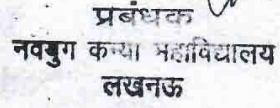 प्रबंधक
नवयुग कन्या महाविद्यालय
लखनऊ